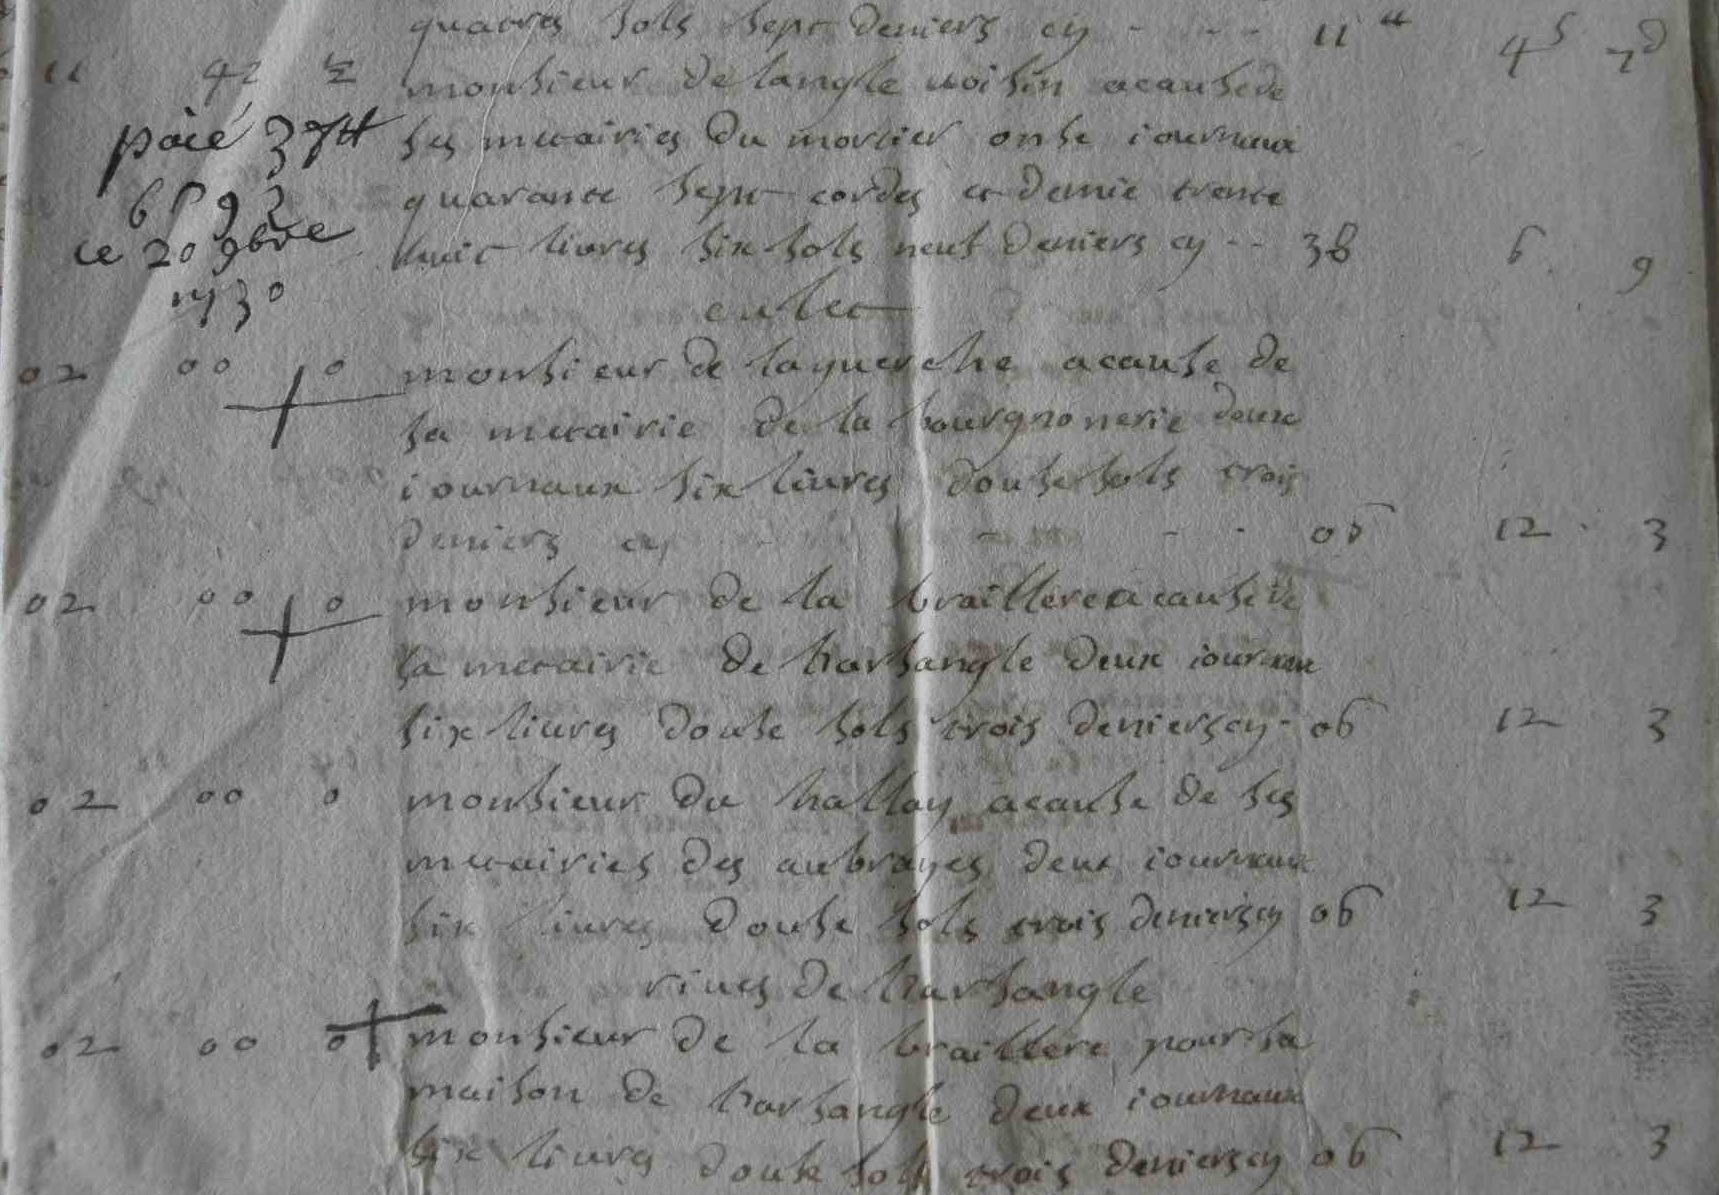 quatres sols sept deniers cy - - - 11 ₶ 4 s 7 d
11 42 ½ monsieur de langle voisin acause de
paié 37 ₶ ses metairies du mortier onse iournaux
6 s 9 d quarante sept cordes et demie trente
ce 20 9bre huit livres six sols neuf deniers cy - - 38 6 9
1730
02 00 0 monsieur de laguerche acause de
sa metairie de la bourgnonerie deux
iournaux six livres douse sols trois
deniers cy - - - - 06 12 3
02 00 0 monsieur de la braillere acause de
sa metairie de harsangle deux iournaux
six livres douse sols trois deniers cy - 06 12 3
02 00 0 monsieur du hallay acause de ses
metairies des aubrayes deux iournaux
six livres douse sols trois deniers cy 06 12 3
rives de harsangle
02 00 0 monsieur de la braillere pour sa
maison de harsangle deux iournaux
six livres douse sols trois deniers cy 06 12 3